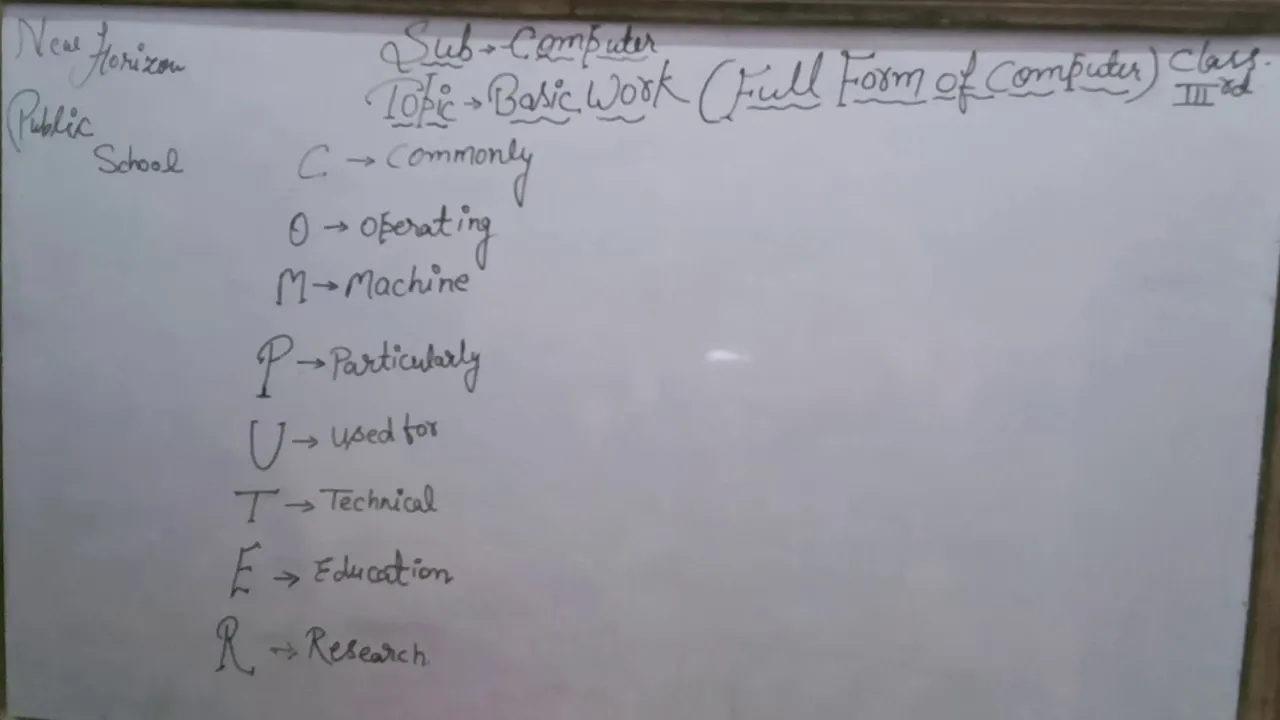 New Horizon
Public
School
Sub → Computer
Topic → Basic Work (Full Form of Computer)
Class.
IIIrd
C → Commonly
O → Operating
M → Machine
P → Particularly
U → used for
T → Technical
E → Education
R → Research